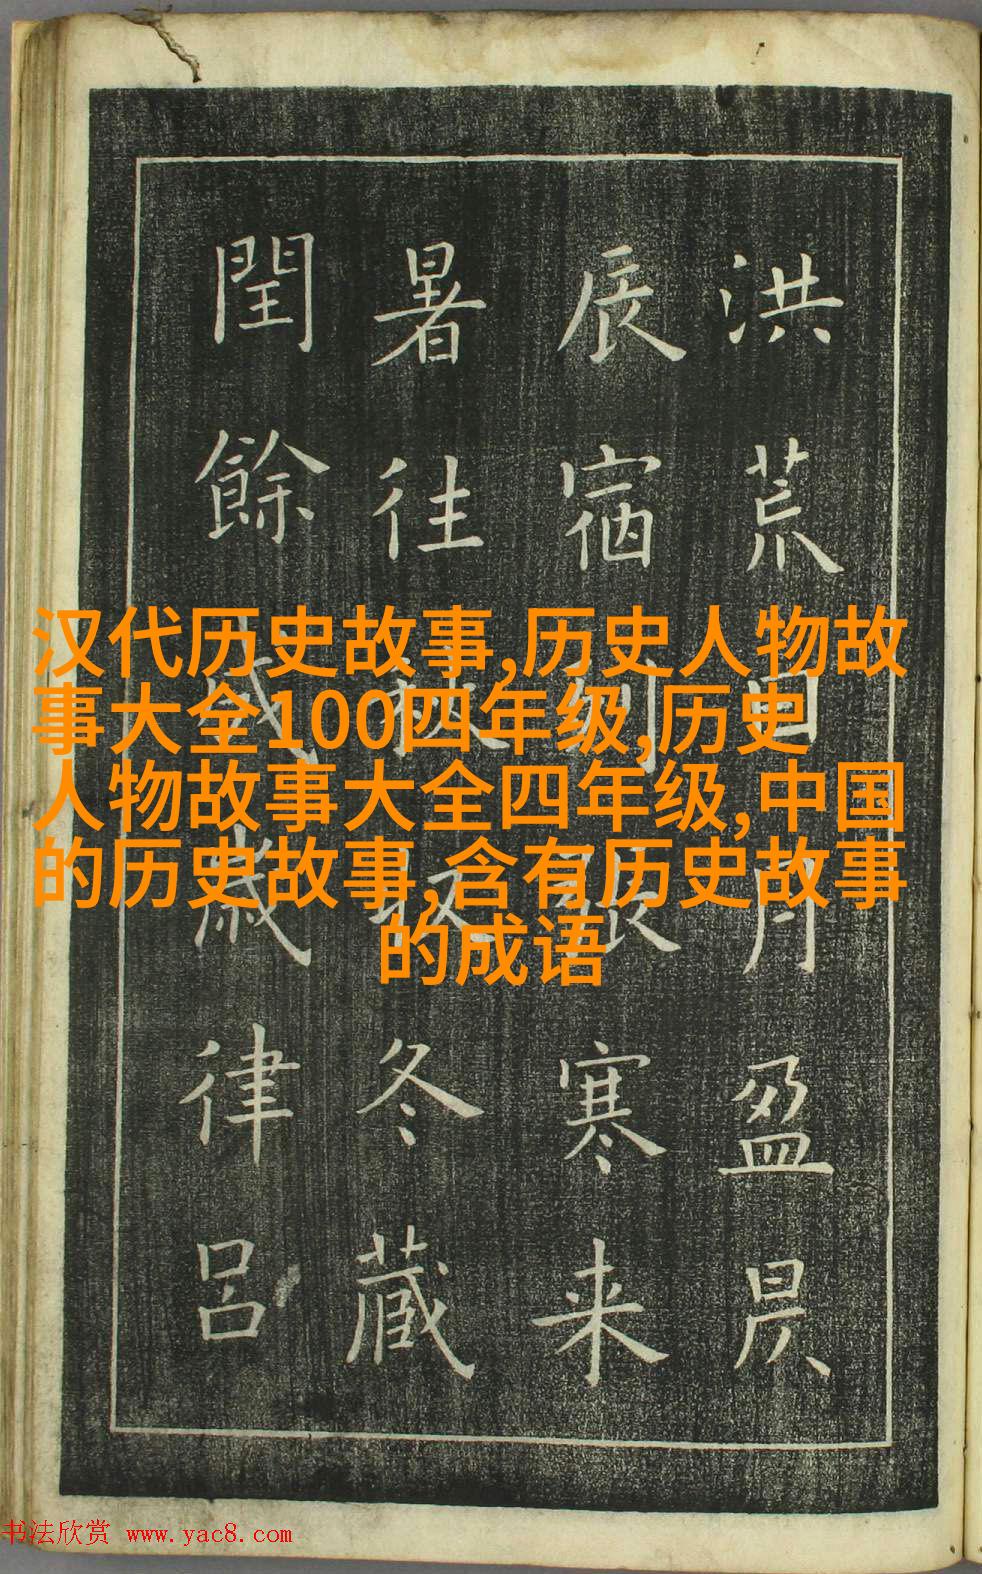 洪荒日月盈昃
辰宿列張寒来
暑往秋收冬藏
閏餘成歲律呂
汉代历史故事,历史人物故
事大全100四年级,历史
人物故事大全四年级,中国
的历史故事,含有历史故事
的成语
书法欣赏 www.yac8.com